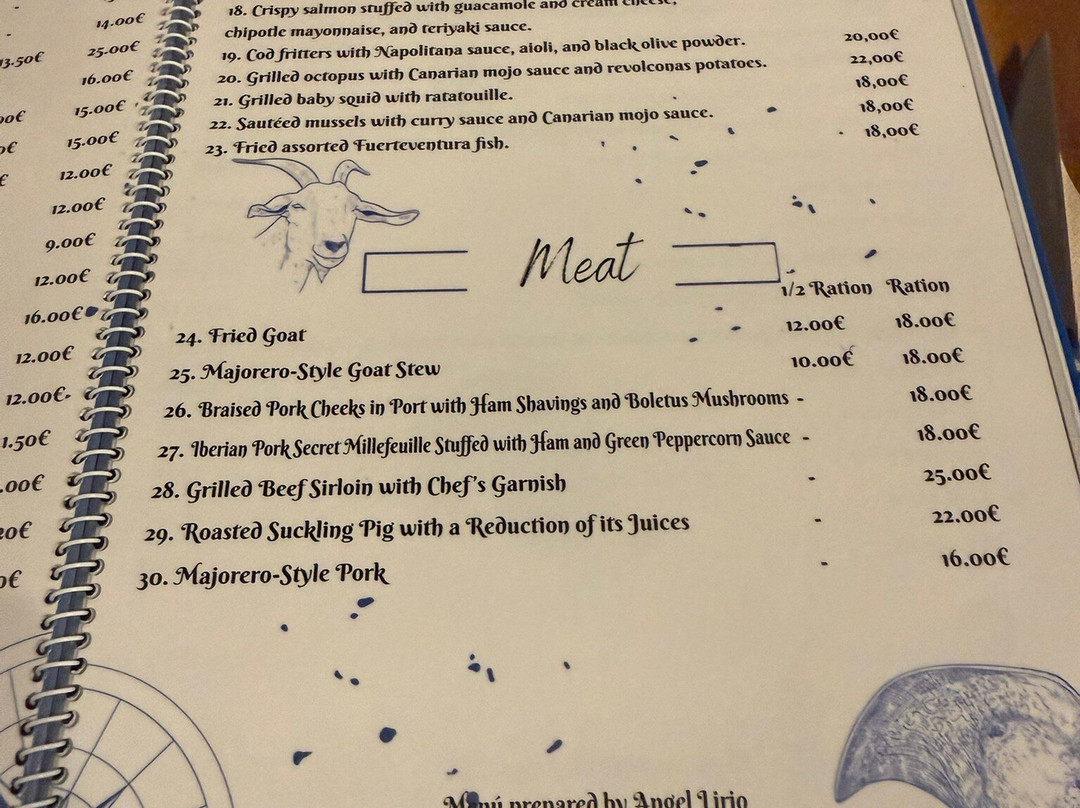 14.00€
13.50€
25.00€
16.00€
15.00€
15.00€
12.00€
12.00€
9.00€
12.00€
16.00€
12.00€
12.00€
1.50€
.00€
18. Crispy salmon stuffed with guacamole and cream cheese,
chipotle mayonnaise, and teriyaki sauce.
19. Cod fritters with Napolitana sauce, aioli, and black olive powder. 20,00€
20. Grilled octopus with Canarian mojo sauce and revolconas potatoes. 22,00€
21. Grilled baby squid with ratatouille. 18,00€
22. Sautéed mussels with curry sauce and Canarian mojo sauce. 18,00€
23. Fried assorted Fuerteventura fish. 18,00€
Meat
1/2 Ration Ration
24. Fried Goat 12.00€ 18.00€
25. Majorero-Style Goat Stew 10.00€ 18.00€
26. Braised Pork Cheeks in Port with Ham Shavings and Boletus Mushrooms - 18.00€
27. Iberian Pork Secret Millefeuille Stuffed with Ham and Green Peppercorn Sauce - 18.00€
28. Grilled Beef Sirloin with Chef's Garnish - 25.00€
29. Roasted Suckling Pig with a Reduction of its Juices - 22.00€
30. Majorero-Style Pork - 16.00€
Menú prepared by Angel Lirio